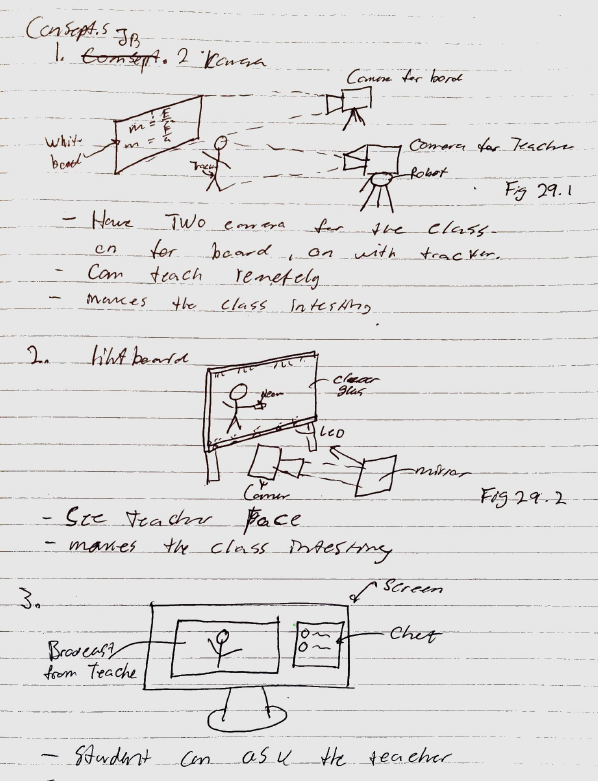 Consept.s JB
1. Comsept. 2 Kamera
Camera for bord
White board
m =
m =
Tracker
Camera for Teacher
Robot
Fig 29.1
- Have TWO camera for the class.
on for board, on with tracker.
- Can teach remetely
- makes the class intesting
2. liht board
clear glas
neon
LED
Camer
mirror
Fig 29.2
- See teacher face
- makes the class intesting
3.
Screen
Chet
Broadcast
from Teache
- Student can ask the teacher